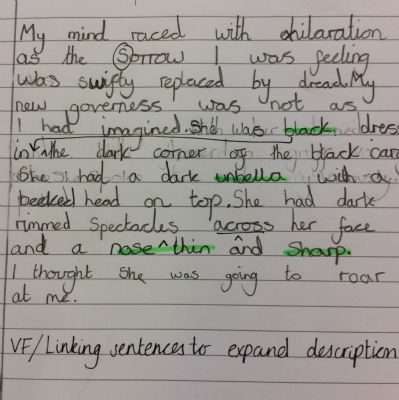 My mind raced with exhilaration
as the Sorrow I was feeling
was swiftly replaced by dread. My
new governess was not as
I had imagined. She was black dress
in the dark corner of the black
She had a dark unbella with a
beeked head on top. She had dark
rimmed spectacles across her face
and a nose thin and sharp.
I thought she was going to roar
at me.
VF/Linking sentences to expand description